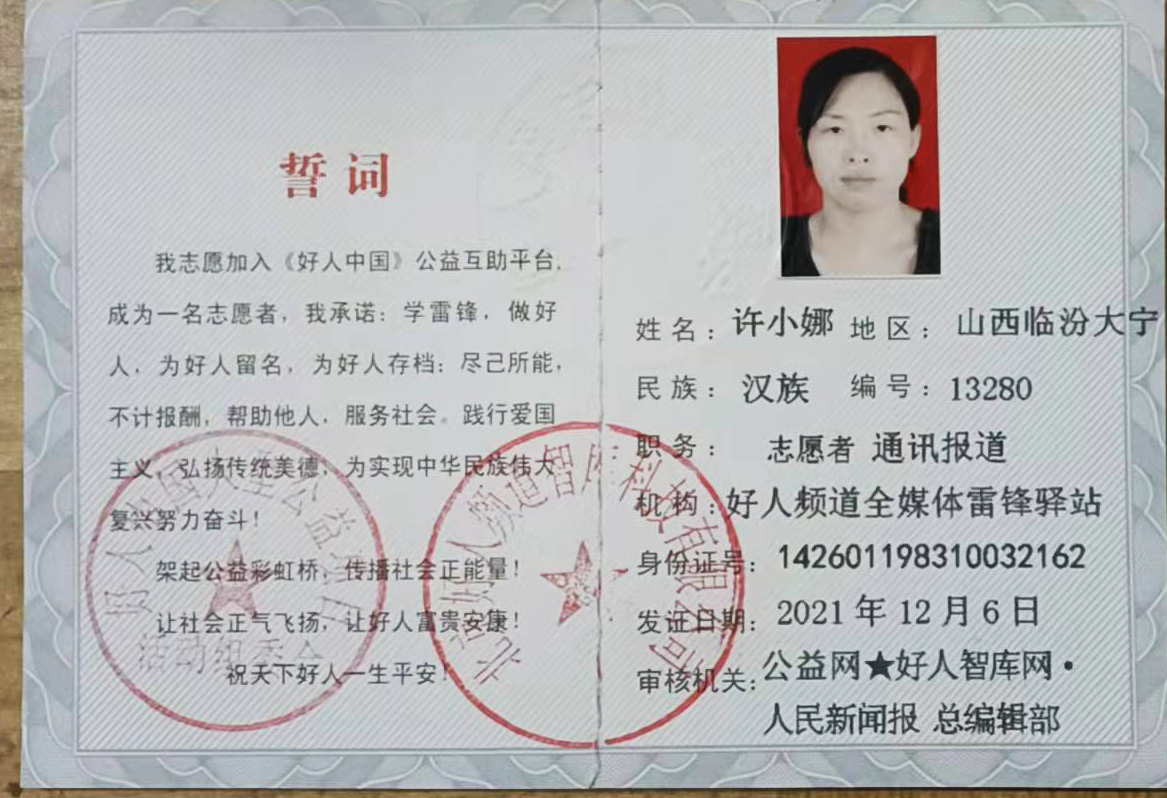 誓词
我志愿加入《好人中国》公益互助平台,
成为一名志愿者，我承诺：学雷锋，做好
人，为好人留名，为好人存档；尽己所能，
不计报酬，帮助他人，服务社会。践行爱国
主义，弘扬传统美德，为实现中华民族伟大
复兴努力奋斗！
架起公益彩虹桥，传播社会正能量！
让社会正气飞扬，让好人富贵安康！
祝天下好人一生平安！
活动组委会
姓名：许小娜 地区：山西临汾大宁
民族：汉族 编号：13280
职务：志愿者 通讯报道
机构：好人频道全媒体雷锋驿站
身份证号：142601198310032162
发证日期：2021年12月6日
审核机关：公益网★好人智库网·
人民新闻报 总编辑部